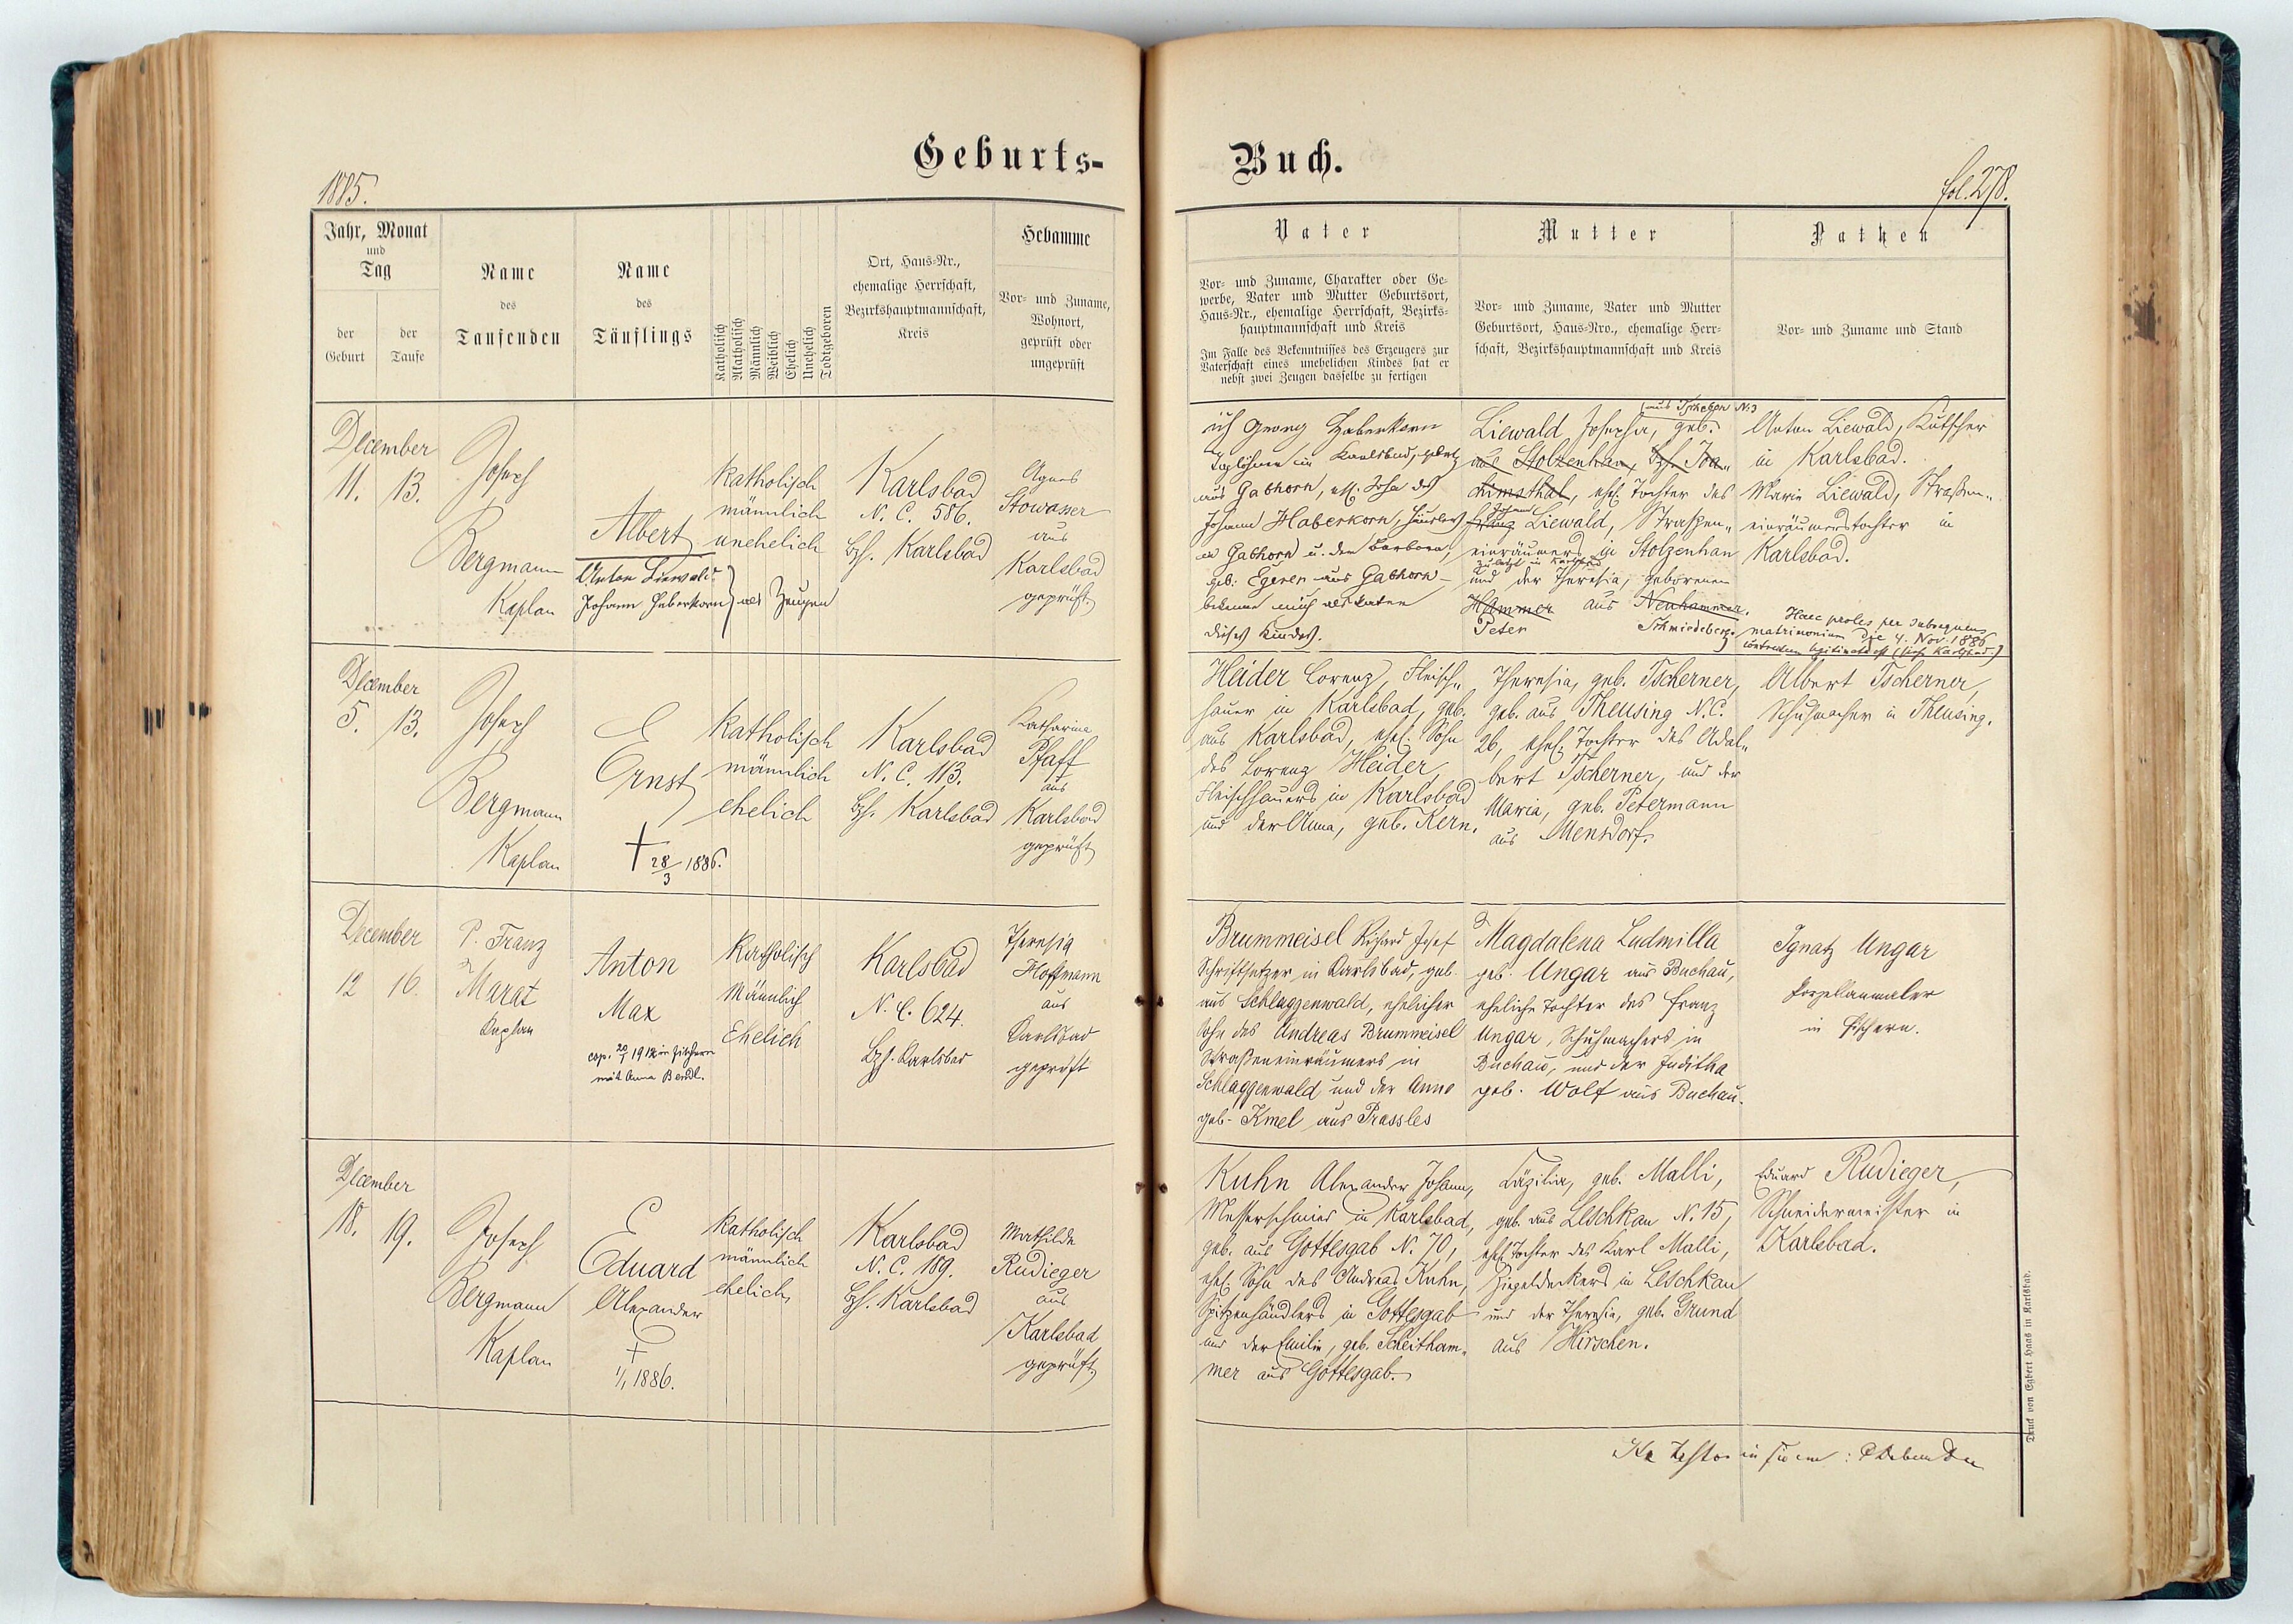 Geburts-
1885.
Jahr, Monat
und
Tag
der
Geburt
der
Taufe
Name
des
Taufenden
Name
des
Täuflings
Katholisch
Akatholisch
Männlich
Weiblich
Ehelich
Unehelich
Todtgeboren
Ort, Haus-Nr.,
ehemalige Herrschaft,
Bezirkshauptmannschaft,
Kreis
Hebamme
Vor- und Zuname,
Wohnort,
geprüft oder
ungeprüft
December
11. 13.
Joseph
Bergmann
Kaplan
Albert
Anton Liewald
Johann Haberkorn } als Zeugen
katholisch
männlich
unehelich
Karlsbad
N. C. 586.
Bzh. Karlsbad
Agnes
Stowasser
aus
Karlsbad
geprüft
December
5. 13.
Joseph
Bergmann
Kaplan
Ernst
† 28/3 1886.
katholisch
männlich
ehelich
Karlsbad
N. C. 113.
Bzh. Karlsbad
Katharina
Pfaff
aus
Karlsbad
geprüft
December
12 16.
P. Franz
Marat
Kaplan
Anton
Max
cop. 1912 in Fischern
mit Anna Bendl.
Katholisch
Männlich
Ehelich
Karlsbad
N. C. 624.
Bzh. Karlsbad
Theresia
Hoffmann
aus
Karlsbad
geprüft
December
18. 19.
Joseph
Bergmann
Kaplan
Eduard
Alexander
†
1/1 1886.
katholisch
männlich
ehelich
Karlsbad
N. C. 189.
Bzh. Karlsbad
Mathilde
Rudieger
aus
Karlsbad
geprüft
Buch.
fol. 278.
Vater
Vor- und Zuname, Charakter oder Ge-
werbe, Vater und Mutter Geburtsort,
Haus-Nr., ehemalige Herrschaft, Bezirks-
hauptmannschaft und Kreis
Im Falle des Bekenntnisses des Erzeugers zur
Vaterschaft eines unehelichen Kindes hat er
nebst zwei Zeugen dasselbe zu fertigen
Mutter
Vor- und Zuname, Vater und Mutter
Geburtsort, Haus-Nro., ehemalige Herr-
schaft, Bezirkshauptmannschaft und Kreis
Pathen
Vor- und Zuname und Stand
ich Georg Haberkorn
Taglöhner in Karlsbad, gebürt.
aus Gabhorn, ehl. Sohn des
Johann Haberkorn, Häusler
in Gabhorn u. der Barbara,
geb: Egerer aus Gabhorn
bekenne mich als Vater
dieses Kindes.
N. 3
Liewald Josepha, geb.
aus Stolzenhan, Bzh. Joa-
chimsthal, ehel. Tochter des
Johann
Franz Liewald, Straßen-
einräumers in Stolzenhan
zuletzt in Karlsbad
und der Theresia, geborenen
Hammer aus Neuhammer.
Peter Schmiedeberg.
Anton Liewald, Kutscher
in Karlsbad.
Marie Liewald, Straßen-
einräumerstochter in
Karlsbad.
Haec proles per subsequens
matrimonium die 4. Nov. 1886
contractum legitimata est
Heider Lorenz, Fleisch-
hauer in Karlsbad, geb.
aus Karlsbad, ehel. Sohn
des Lorenz Heider
Fleischhauers in Karlsbad
und der Anna, geb. Kern.
Theresia, geb. Tscherner,
geb. aus Theusing N. C.
26, ehel. Tochter des Adal-
bert Tscherner, und der
Maria, geb. Petermann
aus Mensdorf.
Albert Tscherner,
Schuhmacher in Theusing.
Brummeisel Richard Josef
Schriftsetzer in Karlsbad, geb.
aus Schlaggenwald, ehelicher
Sohn des Andreas Brummeisel
Straßeneinräumers in
Schlaggenwald und der Anna
geb. Kmel aus Prassles
Magdalena Ludmilla
geb. Ungar aus Buchau,
eheliche Tochter des Franz
Ungar, Schuhmachers in
Buchau, und der Juditha
geb. Wolf aus Buchau.
Ignatz Ungar
Porzellanmaler
in Fischern.
Kuhn Alexander Johann,
Messerschmied in Karlsbad,
geb. aus Gottesgab N. 70,
ehel. Sohn des Andreas Kuhn,
Spitzenhändlers in Gottesgab
und der Emilie, geb. Scheitham-
mer aus Gottesgab.
Cäzilia, geb. Malli,
geb. aus Leschkau N. 15,
ehel. Tochter des Karl Malli,
Ziegeldeckers in Leschkau
und der Theresia, geb. Grund
aus Hirschen.
Eduard Rudieger,
Schneidermeister in
Karlsbad.
Druck von Egbert Haas in Karlsbad.